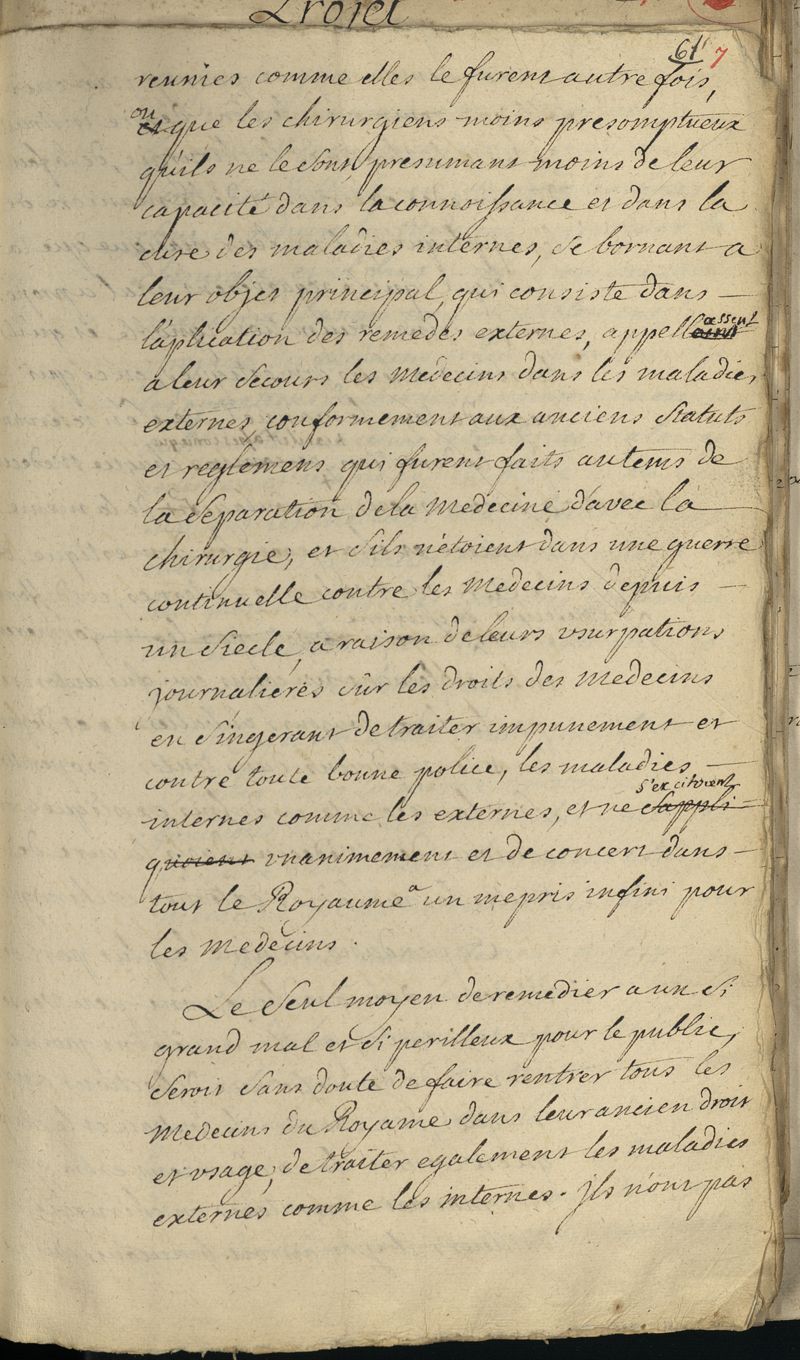 Projet
61 7
reunies comme elles le furent autre fois,
ou
et que les chirurgiens moins presomptueux
qu'ils ne le sont, presumant moins de leur
capacité dans la connoissance et dans la
cure des maladies internes, se bornant a
leur objet principal, qui consiste dans
l'aplication des remedes externes, appellassent
a leur secours les medecins dans les maladies
externes, conformement aux anciens statuts
et reglemens qui furent faits au tems de
la separation de la medecine d'avec la
chirurgie, et s'ils n'etoient dans une guerre
continuelle contre les medecins depuis
un siecle, a raison de leurs usurpations
journalieres sur les droits des medecins
en s'ingerant de traiter impunement et
contre toute bonne police, les maladies
s'excitoient
internes comme les externes, et ne s'appli-
quoient unanimement et de concert dans
tout le Royaume a un mepris infini pour
les medecins.
Le seul moyen de remedier a un si
grand mal et si perilleux pour le public,
seroit sans doute de faire rentrer tous les
medecins du Royame dans leur ancien droit
et usage, de traiter egalement les maladies
externes comme les internes. jls n'ont pas